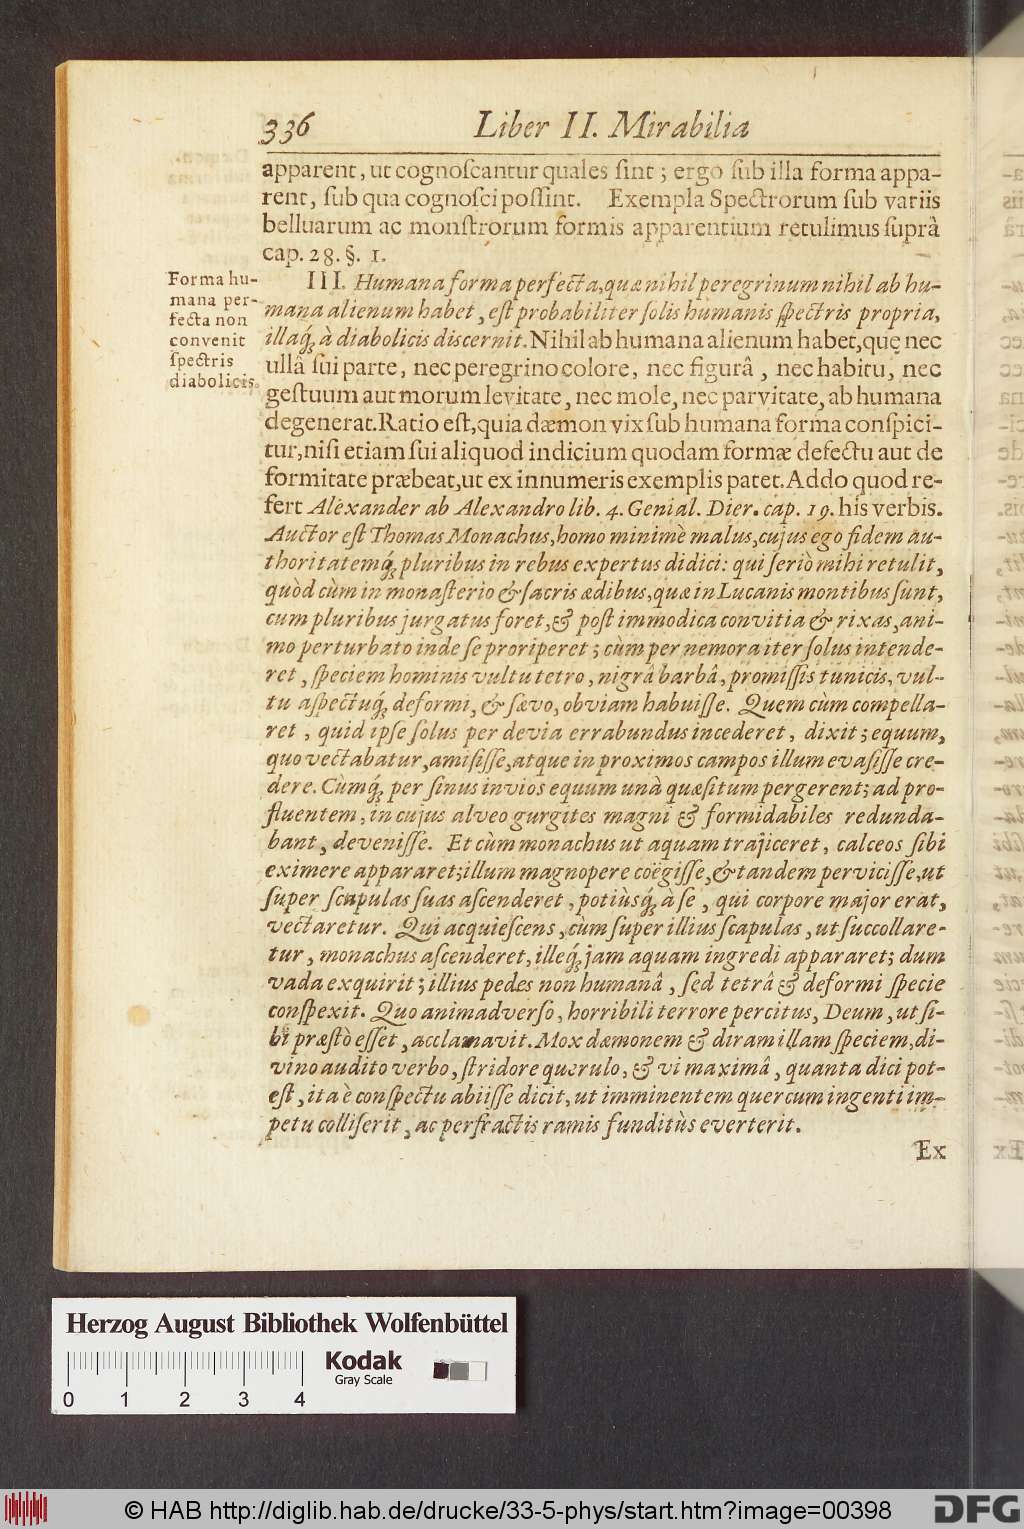 336 Liber II. Mirabilia
apparent, ut cognoſcantur quales ſint; ergo ſub illa forma appa-
rent, ſub qua cognoſci poſſint. Exempla Spectrorum ſub variis
belluarum ac monſtrorum formis apparentium retulimus ſuprà
cap. 28. §. 1.
Forma hu-
mana per-
fecta non
convenit
ſpectris
diabolicis.
III. Humana forma perfecta, quæ nihil peregrinum nihil ab hu-
mana alienum habet, eſt probabiliter ſolis humanis ſpectris propria,
illaq́; à diabolicis discernit. Nihil ab humana alienum habet, quę nec
ullâ ſui parte, nec peregrino colore, nec figurâ, nec habitu, nec
geſtuum aut morum levitate, nec mole, nec parvitate, ab humana
degenerat. Ratio eſt, quia dæmon vix ſub humana forma conſpici-
tur, niſi etiam ſui aliquod indicium quodam formæ defectu aut de
formitate præbeat, ut ex innumeris exemplis patet. Addo quod re-
fert Alexander ab Alexandro lib. 4. Genial. Dier. cap. 19. his verbis.
Auctor eſt Thomas Monachus, homo minimè malus, cujus ego fidem au-
thoritatemq́; pluribus in rebus expertus didici: qui ſeriò mihi retulit,
quòd cùm in monaſterio & ſacris ædibus, quæ in Lucanis montibus ſunt,
cum pluribus jurgatus foret, & poſt immodica convitia & rixas, ani-
mo perturbato inde ſe proriperet; cùm per nemora iter ſolus intende-
ret, ſpeciem hominis vultu tetro, nigrâ barbâ, promiſſis tunicis, vul-
tu aſpectuq́; deformi, & ſævo, obviam habuiſſe. Quem cùm compella-
ret, quid ipſe ſolus per devia errabundus incederet, dixit; equum,
quo vectabatur, amiſiſſe, atque in proximos campos illum evaſiſſe cre-
dere. Cùmq́; per ſinus invios equum unà quæſitum pergerent; ad pro-
fluentem, in cujus alveo gurgites magni & formidabiles redunda-
bant, deveniſſe. Et cùm monachus ut aquam trajiceret, calceos ſibi
eximere appararet; illum magnopere coëgiſſe, & tandem perviciſſe, ut
ſuper ſcapulas ſuas aſcenderet, potiùsq́; à ſe, qui corpore major erat,
vectaretur. Qui acquieſcens, cùm ſuper illius ſcapulas, ut ſuccollare-
tur, monachus aſcenderet, illeq́; jam aquam ingredi appararet; dum
vada exquirit; illius pedes non humanâ, ſed tetrâ & deformi ſpecie
conſpexit. Quo animadverſo, horribili terrore percitus, Deum, ut ſi-
bi præſtò eſſet, acclamavit. Mox dæmonem & diram illam ſpeciem, di-
vino audito verbo, ſtridore querulo, & vi maximâ, quanta dici pot-
eſt, ita è conſpectu abiiſſe dicit, ut imminentem quercum ingenti im-
petu colliſerit, ac perfractis ramis funditùs everterit.
Ex
Herzog August Bibliothek Wolfenbüttel
Kodak
Gray Scale
0 1 2 3 4
© HAB http://diglib.hab.de/drucke/33-5-phys/start.htm?image=00398
DFG